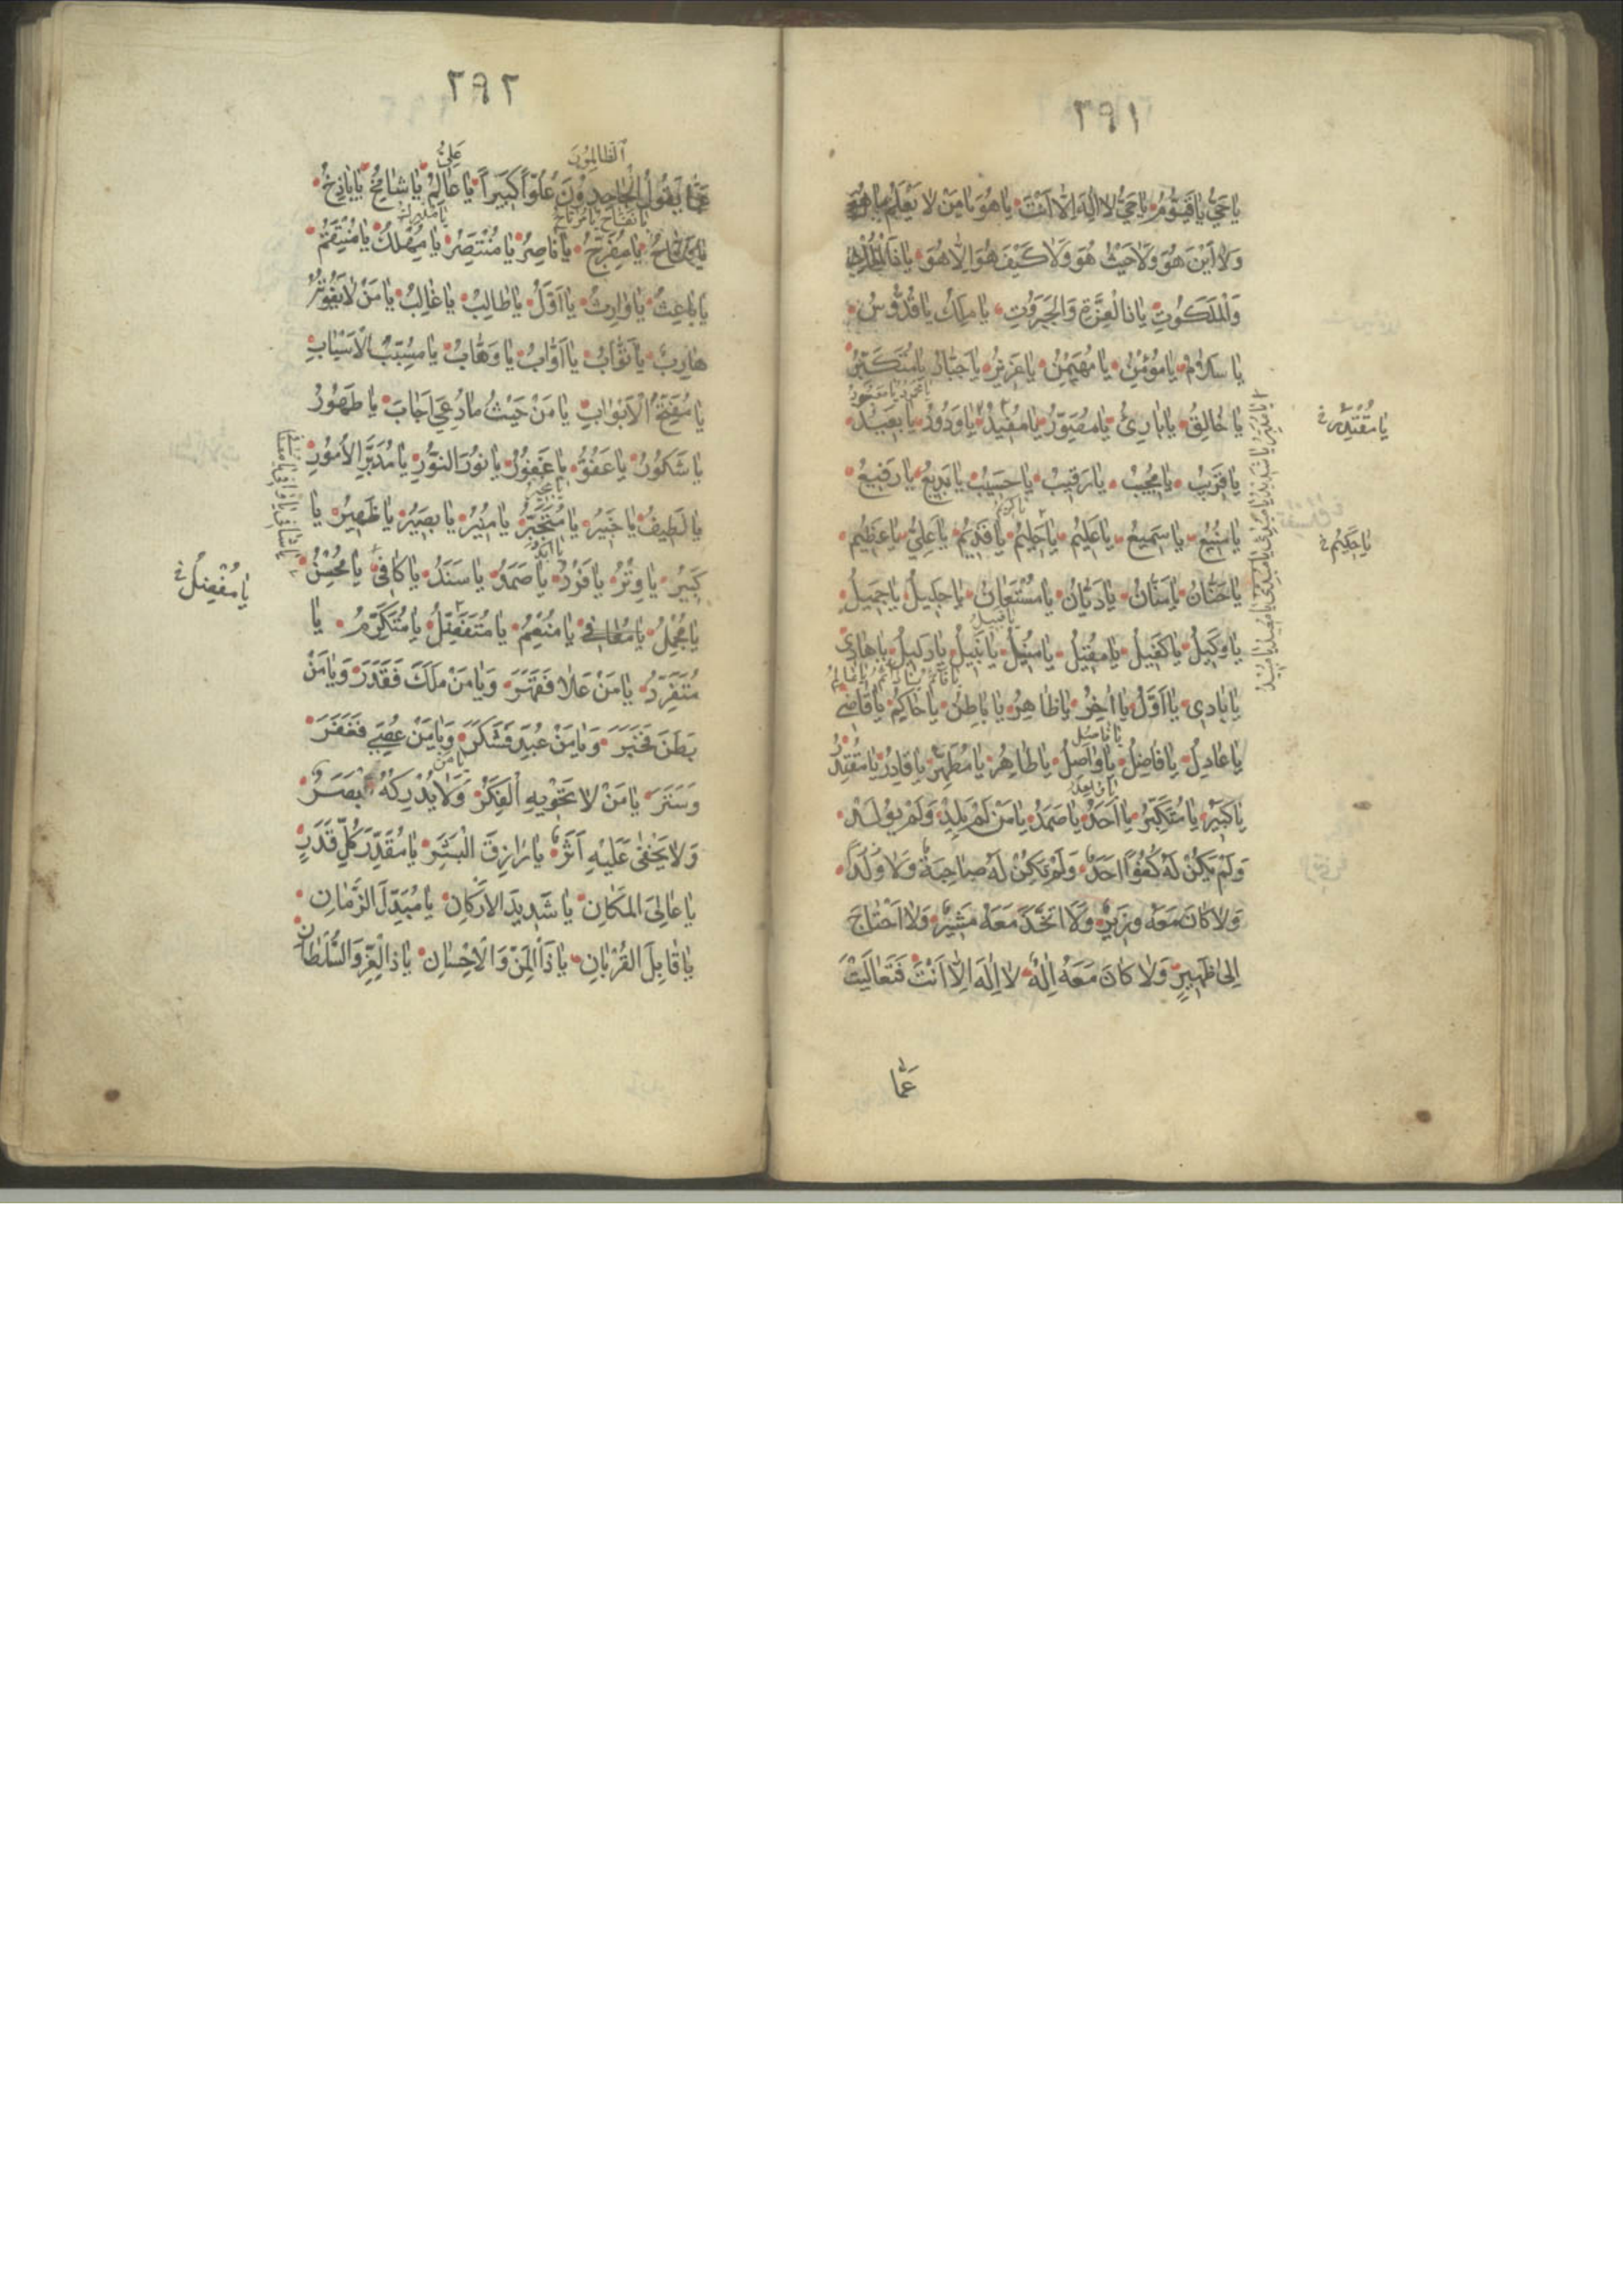 ٢٩١
يا حَيُّ يا قَيُّومُ يا حَيُّ لا اِلٰهَ اِلّا اَنْتَ يا هُوَ يا مَنْ لا يَعْلَمُ ما هُوَ
وَلا اَيْنَ هُوَ وَلا حَيْثُ هُوَ وَلا كَيْفَ هُوَ اِلّا هُوَ يا ذَا الْمُلْكِ
وَالْمَلَكُوتِ يا ذَا الْعِزَّةِ وَالْجَبَرُوتِ يا مَلِكُ يا قُدُّوسُ
يا سَلامُ يا مُؤْمِنُ يا مُهَيْمِنُ يا عَزِيزُ يا جَبّارُ يا مُتَكَبِّرُ
يا خالِقُ يا بارِئُ يا مُصَوِّرُ يا مُفِيدُ يا وَدُودُ يا بَعِيدُ
يا مُقْتَدِرُ
يا قَرِيبُ يا مُجِيبُ يا رَقِيبُ يا حَسِيبُ يا بَدِيعُ يا رَفِيعُ
يا كريم
يا مَنِيعُ يا سَمِيعُ يا عَلِيمُ يا حَلِيمُ يا قَدِيمُ يا عَلِيُّ يا عَظِيمُ
يا حَكِيمُ
يا حَنّانُ يا مَنّانُ يا دَيّانُ يا مُسْتَعانُ يا جَلِيلُ يا جَمِيلُ
يا وَكِيلُ يا كَفِيلُ يا مُقِيلُ يا مُنِيلُ يا نَبِيلُ يا دَلِيلُ يا هادِي
يا بادِي يا اَوَّلُ يا اٰخِرُ يا ظاهِرُ يا باطِنُ يا حاكِمُ يا قاضِي
يا عادِلُ يا فاضِلُ يا واصِلُ يا طاهِرُ يا مُطَهِّرُ يا قادِرُ يا مُقْتَدِرُ
يا كَبِيرُ يا مُتَكَبِّرُ يا اَحَدُ يا صَمَدُ يا مَنْ لَمْ يَلِدْ وَلَمْ يُولَدْ
وَلَمْ يَكُنْ لَهُ كُفُوًا اَحَدٌ وَلَمْ تَكُنْ لَهُ صاحِبَةٌ وَلا وَلَدًا
وَلا كانَ مَعَهُ وَزِيرٌ وَلا اتَّخَذَ مَعَهُ مُشِيرًا وَلا اَحْتاجَ
اِلىٰ ظَهِيرٍ وَلا كانَ مَعَهُ اِلٰهٌ لا اِلٰهَ اِلّا اَنْتَ فَتَعالَيْتَ
عَمّا
٢٩٢
الظّالِمُونَ عَلِيُّ
عَمّا يَقُولُ الْجاحِدُونَ عُلُوًّا كَبِيراً يا عالِمُ يا شامِخُ يا باذِخُ
يا فَتّاحُ يا مُفَرِّجُ يا ناصِرُ يا مُنْتَصِرُ يا مُهْلِكُ يا مُنْتَقِمُ
يا باعِثُ يا وارِثُ يا اَوَّلُ يا طالِبُ يا غالِبُ يا مَنْ لا يَفُوتُهُ
هارِبٌ يا تَوّابُ يا اَوّابُ يا وَهّابُ يا مُسَبِّبَ الْاَسْبابِ
يا مُفَتِّحَ الْاَبْوابِ يا مَنْ حَيْثُ ما دُعِيَ اَجابَ يا طَهُورُ
يا شَكُورُ يا عَفُوُّ يا غَفُورُ يا نُورَ النُّورِ يا مُدَبِّرَ الْاُمُورِ
يا لَطِيفُ يا خَبِيرُ يا مُتَجَبِّرُ يا مُنِيرُ يا بَصِيرُ يا ظَهِيرُ يا
كَبِيرُ يا وِتْرُ يا فَرْدُ يا صَمَدُ يا سَنَدُ يا كافِي يا مُحْسِنُ
يا مُفْضِلُ
يا مُجْمِلُ يا مُعافِي يا مُنْعِمُ يا مُتَفَضِّلُ يا مُتَكَرِّمُ يا
مُتَفَرِّدُ يا مَنْ عَلا فَقَهَرَ وَيا مَنْ مَلَكَ فَقَدَرَ وَيا مَنْ
بَطَنَ فَخَبَرَ وَيا مَنْ عُبِدَ فَشَكَرَ وَيا مَنْ عُصِيَ فَغَفَرَ
وَسَتَرَ يا مَنْ لا تَحْوِيهِ الْفِكَرُ وَلا يُدْرِكُهُ بَصَرٌ
وَلا يَخْفىٰ عَلَيْهِ اَثَرٌ يا رازِقَ الْبَشَرِ يا مُقَدِّرَ كُلِّ قَدَرٍ
يا عالِيَ الْمَكانِ يا شَدِيدَ الْاَرْكانِ يا مُبَدِّلَ الزَّمانِ
يا قابِلَ الْقُرْبانِ يا ذَا الْمَنِّ وَالْاِحْسانِ يا ذَا الْعِزِّ وَالسُّلْطانِ